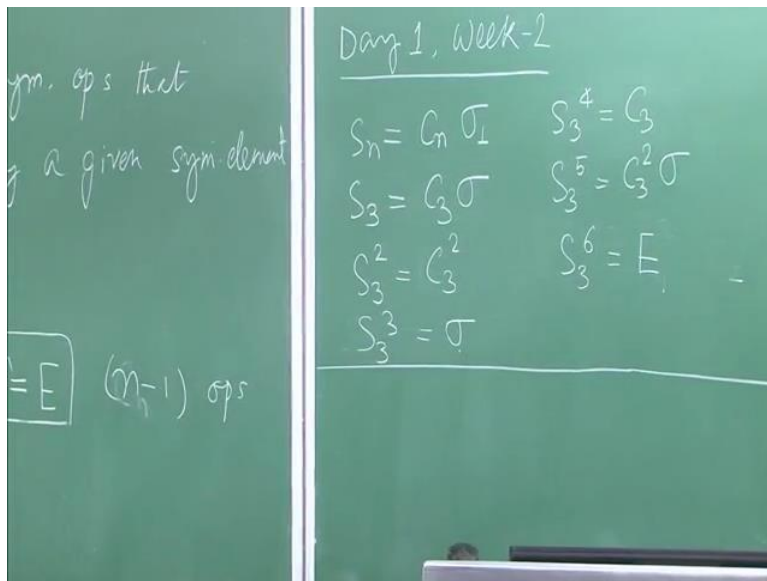 ym. ops that
a given sym. element
= E (n-1) ops
Day 1, Week-2
Sₙ = Cₙ σ⊥
S₃ = C₃ σ
S₃² = C₃²
S₃³ = σ
S₃⁴ = C₃
S₃⁵ = C₃² σ
S₃⁶ = E